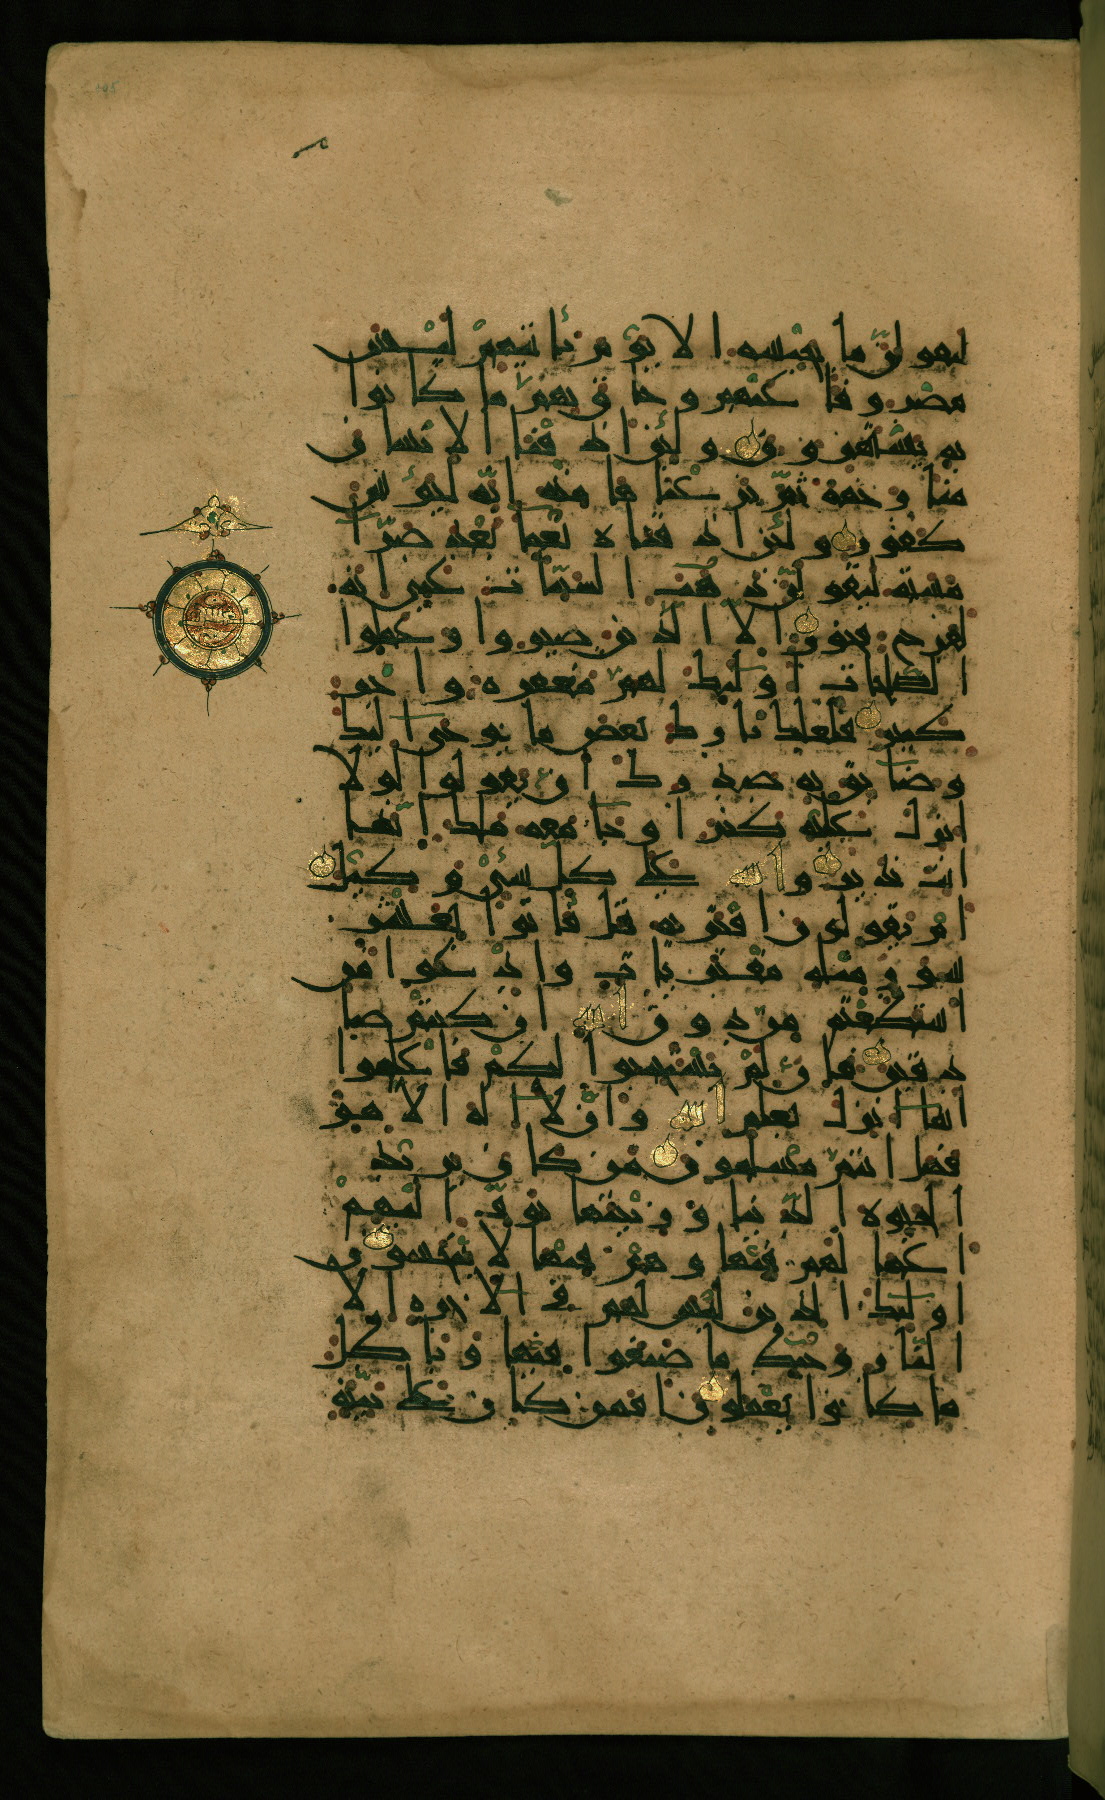 ليقولن ما يحبسه الا يوم يأتيهم ليس
مصروفا عنهم وحاق بهم ما كانوا
به يستهزون ولئن اذقنا الانسان
منا رحمة ثم نزعنا ها منه انه ليؤس
كفور ولئن اذقناه نعما بعد ضرا
مسته ليقولن ذهب السيات عني انه
لفرح فخور الا الذين صبروا وعملوا
الصالحات اولئك لهم مغفرة واجر
كبير فلعلك تارك بعض ما يوحى اليك
وضائق به صدرك ان يقولوا لولا
انزل عليه كنز او جاء معه ملك انما
انت نذير والله على كل شيء وكيل
ام يقولون افتريه قل فأتوا بعشر
سور مثله مفتريات وادعوا من
استطعتم من دون الله ان كنتم صا
دقين فان لم يستجيبوا لكم فاعلموا
انما انزل بعلم الله وان لا اله الا هو
فهل انتم مسلمون من كان يريد
الحيوة الدنيا وزينتها نوف اليهم
اعمالهم فيها وهم فيها لا يبخسون
اولئك الذين ليس لهم في الاخرة الا
النار وحبط ما صنعوا فيها وباطل
ما كانوا يعملون افمن كان على بينة